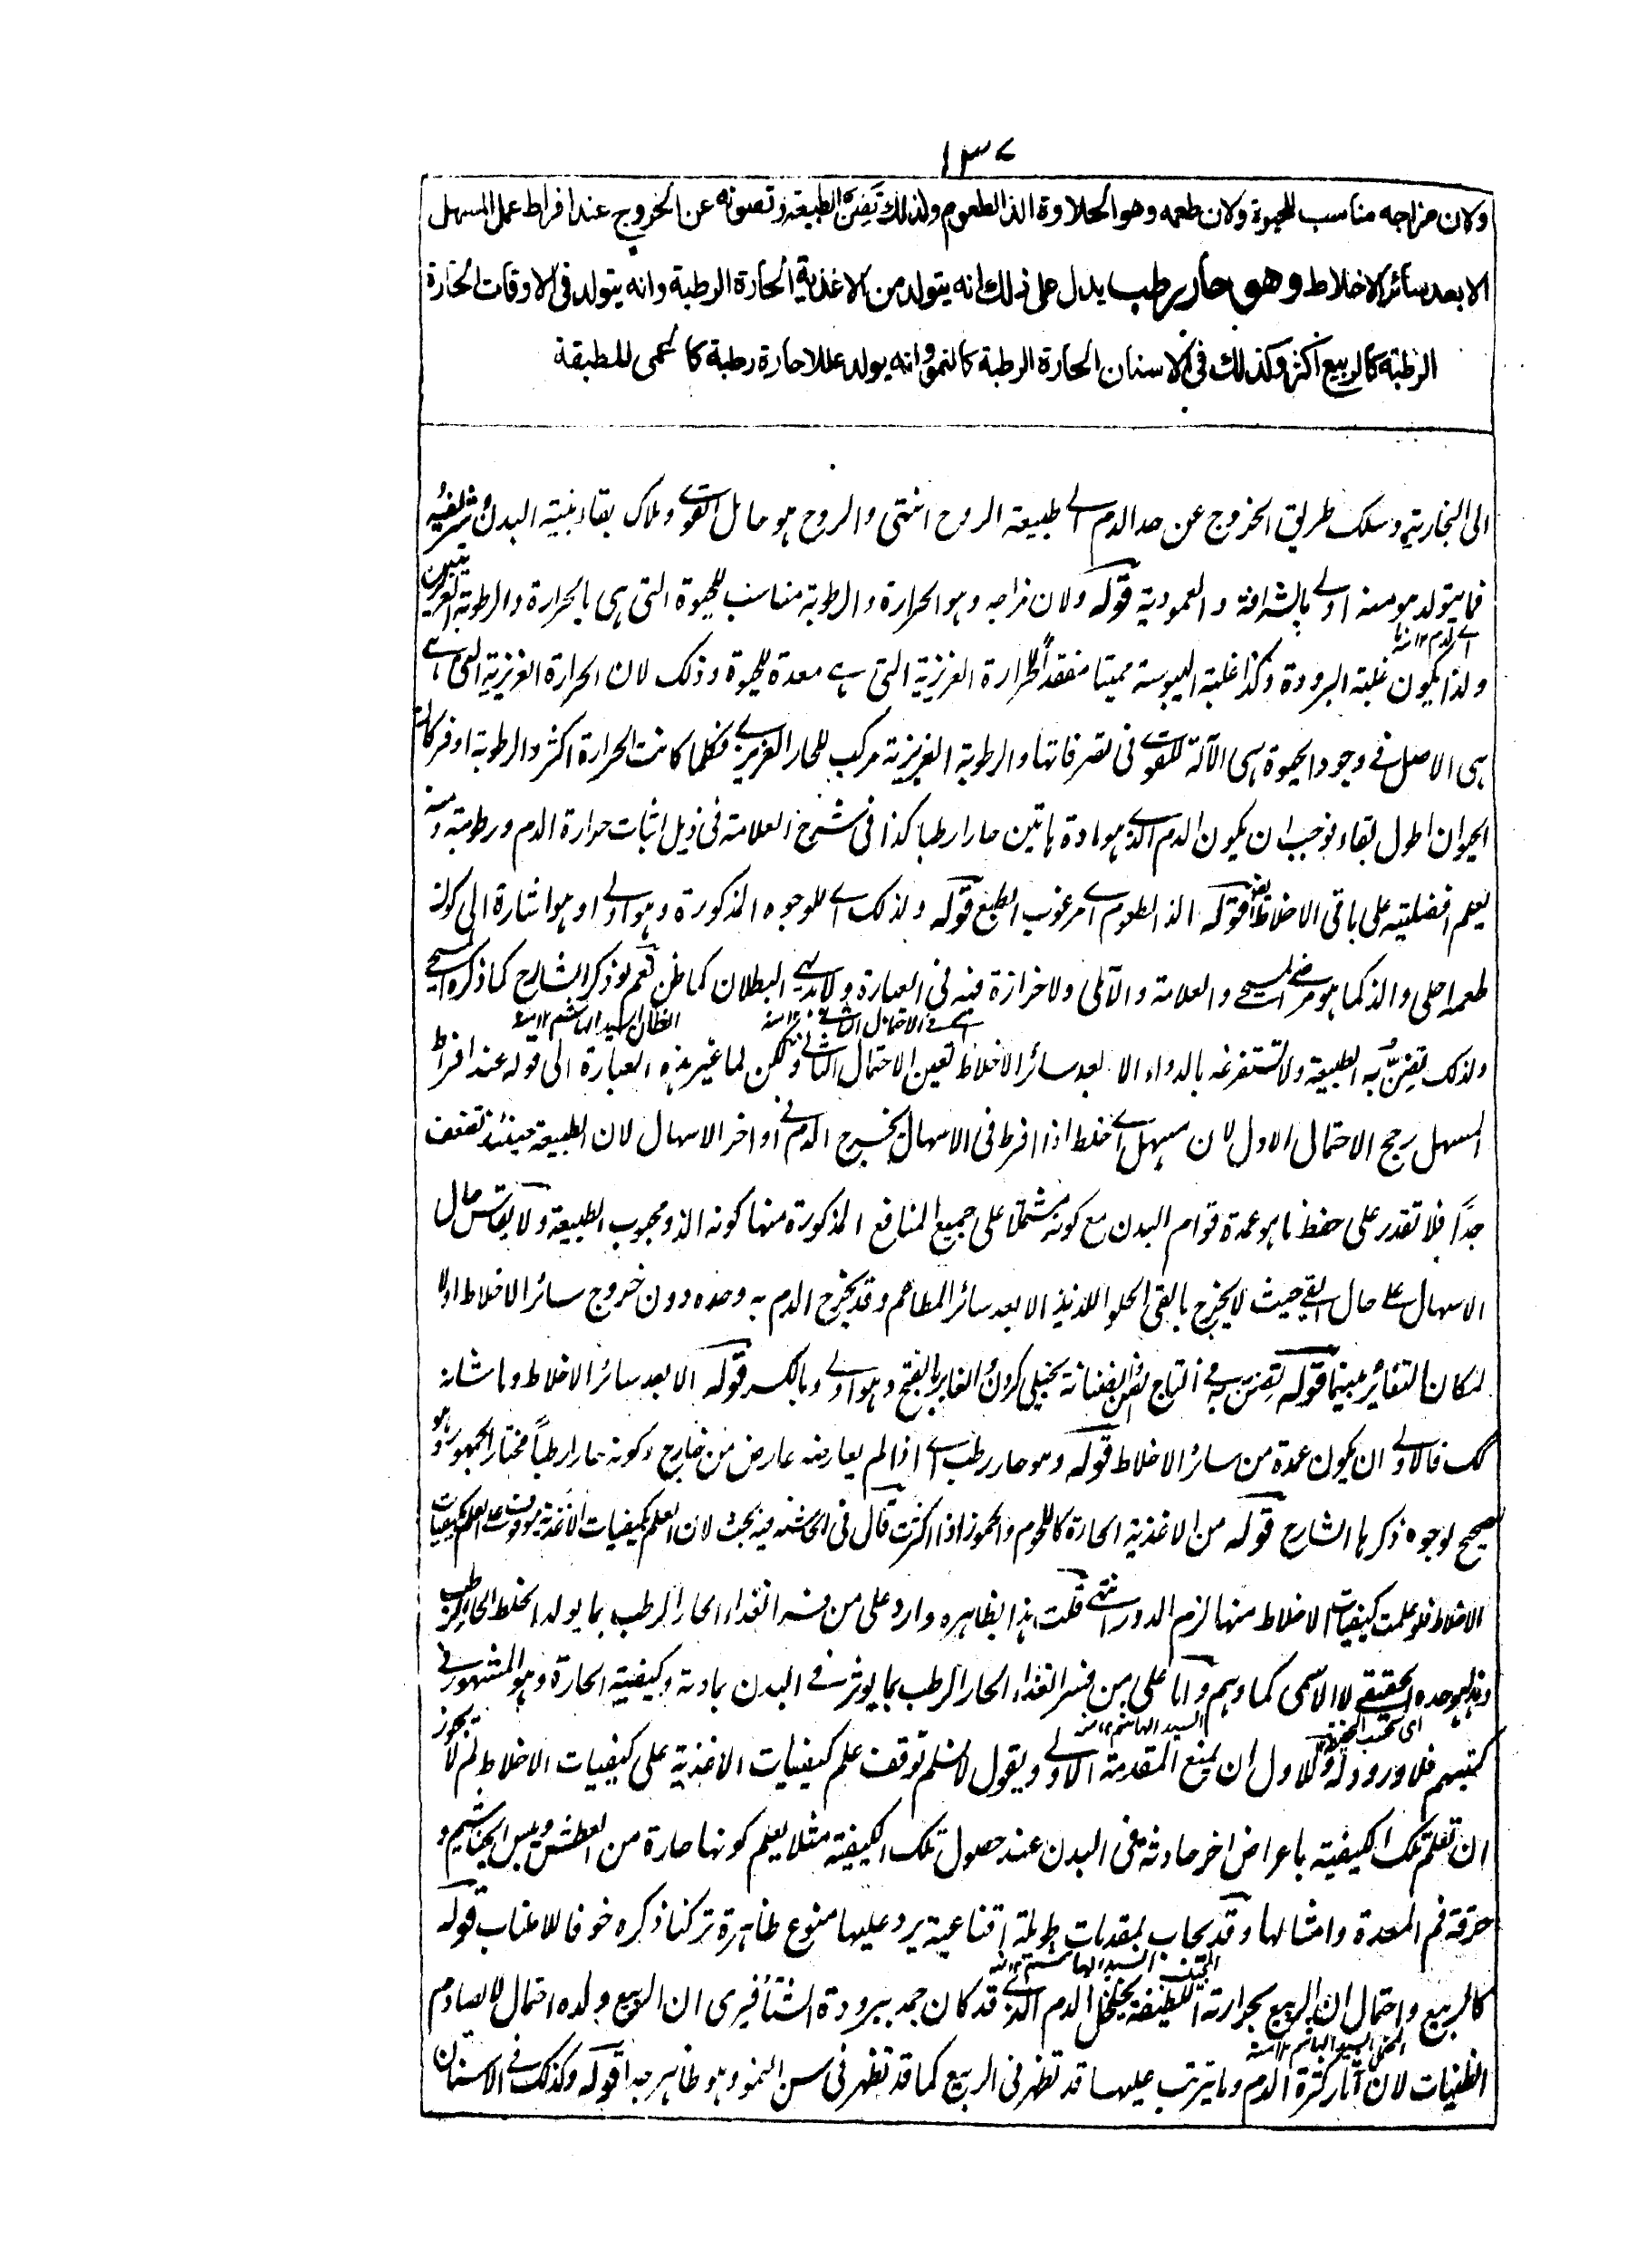 ١٣٧
ولان مزاجه مناسب للحيوة ولان طعمه وهو الحلاوة الذ الطعوم ولذلك تضن به الطبيعة وتصونه عن الخروج عند افراط عمل المسهل
الا بعد سائر الاخلاط وهو حار رطب يدل على ذلك انه يتولد من الاغذية الحارة الرطبة وانه يتولد فى الاوقات الحارة
الرطبة كالربيع اكثر وكذلك فى الاسنان الحارة الرطبة كالنمو وانه يولد عللا حارة رطبة كالحمى المطبقة
الى البخارية وسلك طريق الخروج عن حد الدم الى طبيعة الروح انتهى والروح هو حامل القوى وملاك بقاء بنية البدن وشريفه
فما يتولد هو منه اولى بالشرافة والعمودية قوله ولان مزاجه وهو الحرارة والرطوبة مناسب للحيوة التى هى بالحرارة والرطوبة الغريزيتين
ولذا يكون غلبة البرودة وكذا غلبة اليبوسة مميتا مفقدا للحرارة الغريزية التى هى معدة للحيوة وذلك لان الحرارة الغريزية التى
هى الاصل فى وجود الحيوة هى الآلة للقوى فى تصرفاتها والرطوبة الغريزية مركب للحار الغريزى فكلما كانت الحرارة اكثر والرطوبة اوفر كان
الحيوان اطول بقاء فوجب ان يكون الدم الذى هو مادة هاتين حارا رطبا كذا فى شرح العلامة فى ذيل اثبات حرارة الدم ورطوبته ومنه
يعلم افضليته على باقى الاخلاط ايضا قوله الذ الطعوم اى مرغوب الطبع قوله ولذلك اى للوجوه المذكورة وهو اولى او هو اشارة الى كون
طعمه احلى والذ كما هو مرضى المسيحى والعلامة والآملى ولا حزازة فيه فى العبارة ولا بديهى البطلان كما ظن نعم لو ذكر الشارح كما ذكره المسيحى
ولذلك تضن به الطبيعة ولا تستفرغه بالدواء الا بعد سائر الاخلاط تعين الاحتمال الثانى ولكن لما غير هذه العبارة الى قوله عند افراط
المسهل رجح الاحتمال الاول لان مسهل اى خلط اذا افرط فى الاسهال يخرج الدم فى اواخر الاسهال لان الطبيعة حينئذ تضعف
جدا فلا تقدر على حفظ ما هو عمدة قوام البدن مع كونه مشتملا على جميع المنافع المذكورة منها كونه الذ ومحبوب الطبيعة ولا يقاس حال
الاسهال على حال القى حيث لا يخرج بالقى الحلو اللذيذ الا بعد سائر المطاعم وقد يخرج الدم به وحده دون خروج سائر الاخلاط اولا
لمكان التغائر بينهما قوله تضن به فى التاج الضن والضنانة بخيلى كردن والغابر بالفتح وهو اولى وبالكسر قوله الا بعد سائر الاخلاط وما شانه
كك فالاولى ان يكون عمدة من سائر الاخلاط قوله وهو حار رطب اى اذا لم يعارضه عارض من خارج وكونه حارا رطبا مختار الجمهور وهو
صحيح لوجوه ذكرها الشارح قوله من الاغذية الحارة كاللحوم والخمور اذا اكثرت قال فى الحاشية فيه بحث لان العلم بكيفيات الاغذية موقوف على العلم بكيفيات
الاخلاط فلو علمت كيفيات الاخلاط منها لزم الدور انتهى قلت هذا بظاهره وارد على من فسر الغذاء الحار الرطب بما يولد الخلط الحار الرطب
وهذا هو حده الحقيقى لا الاسمى كما وهم واما على من فسر الغذاء الحار الرطب بما يوثر فى البدن بمادته وكيفيته الحارة وهو المشهور فى
كتبهم فلا ورود له وللاول ان يمنع المقدمة الاولى ويقول لا نسلم توقف علم كيفيات الاغذية على كيفيات الاخلاط لم لا يجوز
ان تعلم تلك الكيفية باعراض اخر حادثة فى البدن عند حصول تلك الكيفية مثلا يعلم كونها حارة من العطش ويبس الخياشيم و
حرقة فم المعدة وامثالها وقد يجاب بمقدمات طويلة اقناعية يرد عليها منوع ظاهرة تركنا ذكره خوفا للاطناب قوله
كالربيع واحتمال ان الربيع بحرارته اللطيفة يخلخل الدم الذى قد كان جمد ببرودة الشتاء فيرى ان الربيع ولده احتمال لا يصادم
الظنيات لان آثار كثرة الدم وما يترتب عليها قد تظهر فى الربيع كما قد تظهر فى سن النمو وهو ظاهر جدا قوله وكذلك فى الاسنان